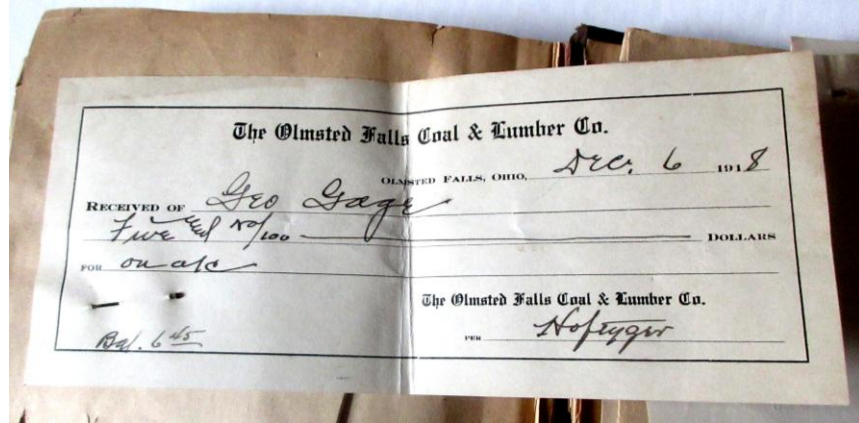 The Olmsted Falls Coal & Lumber Co.
OLMSTED FALLS, OHIO, Dec. 6 1918
RECEIVED OF Geo Gage
Five and no/100 DOLLARS
FOR on a/c
The Olmsted Falls Coal & Lumber Co.
PER
Bal. 6 45